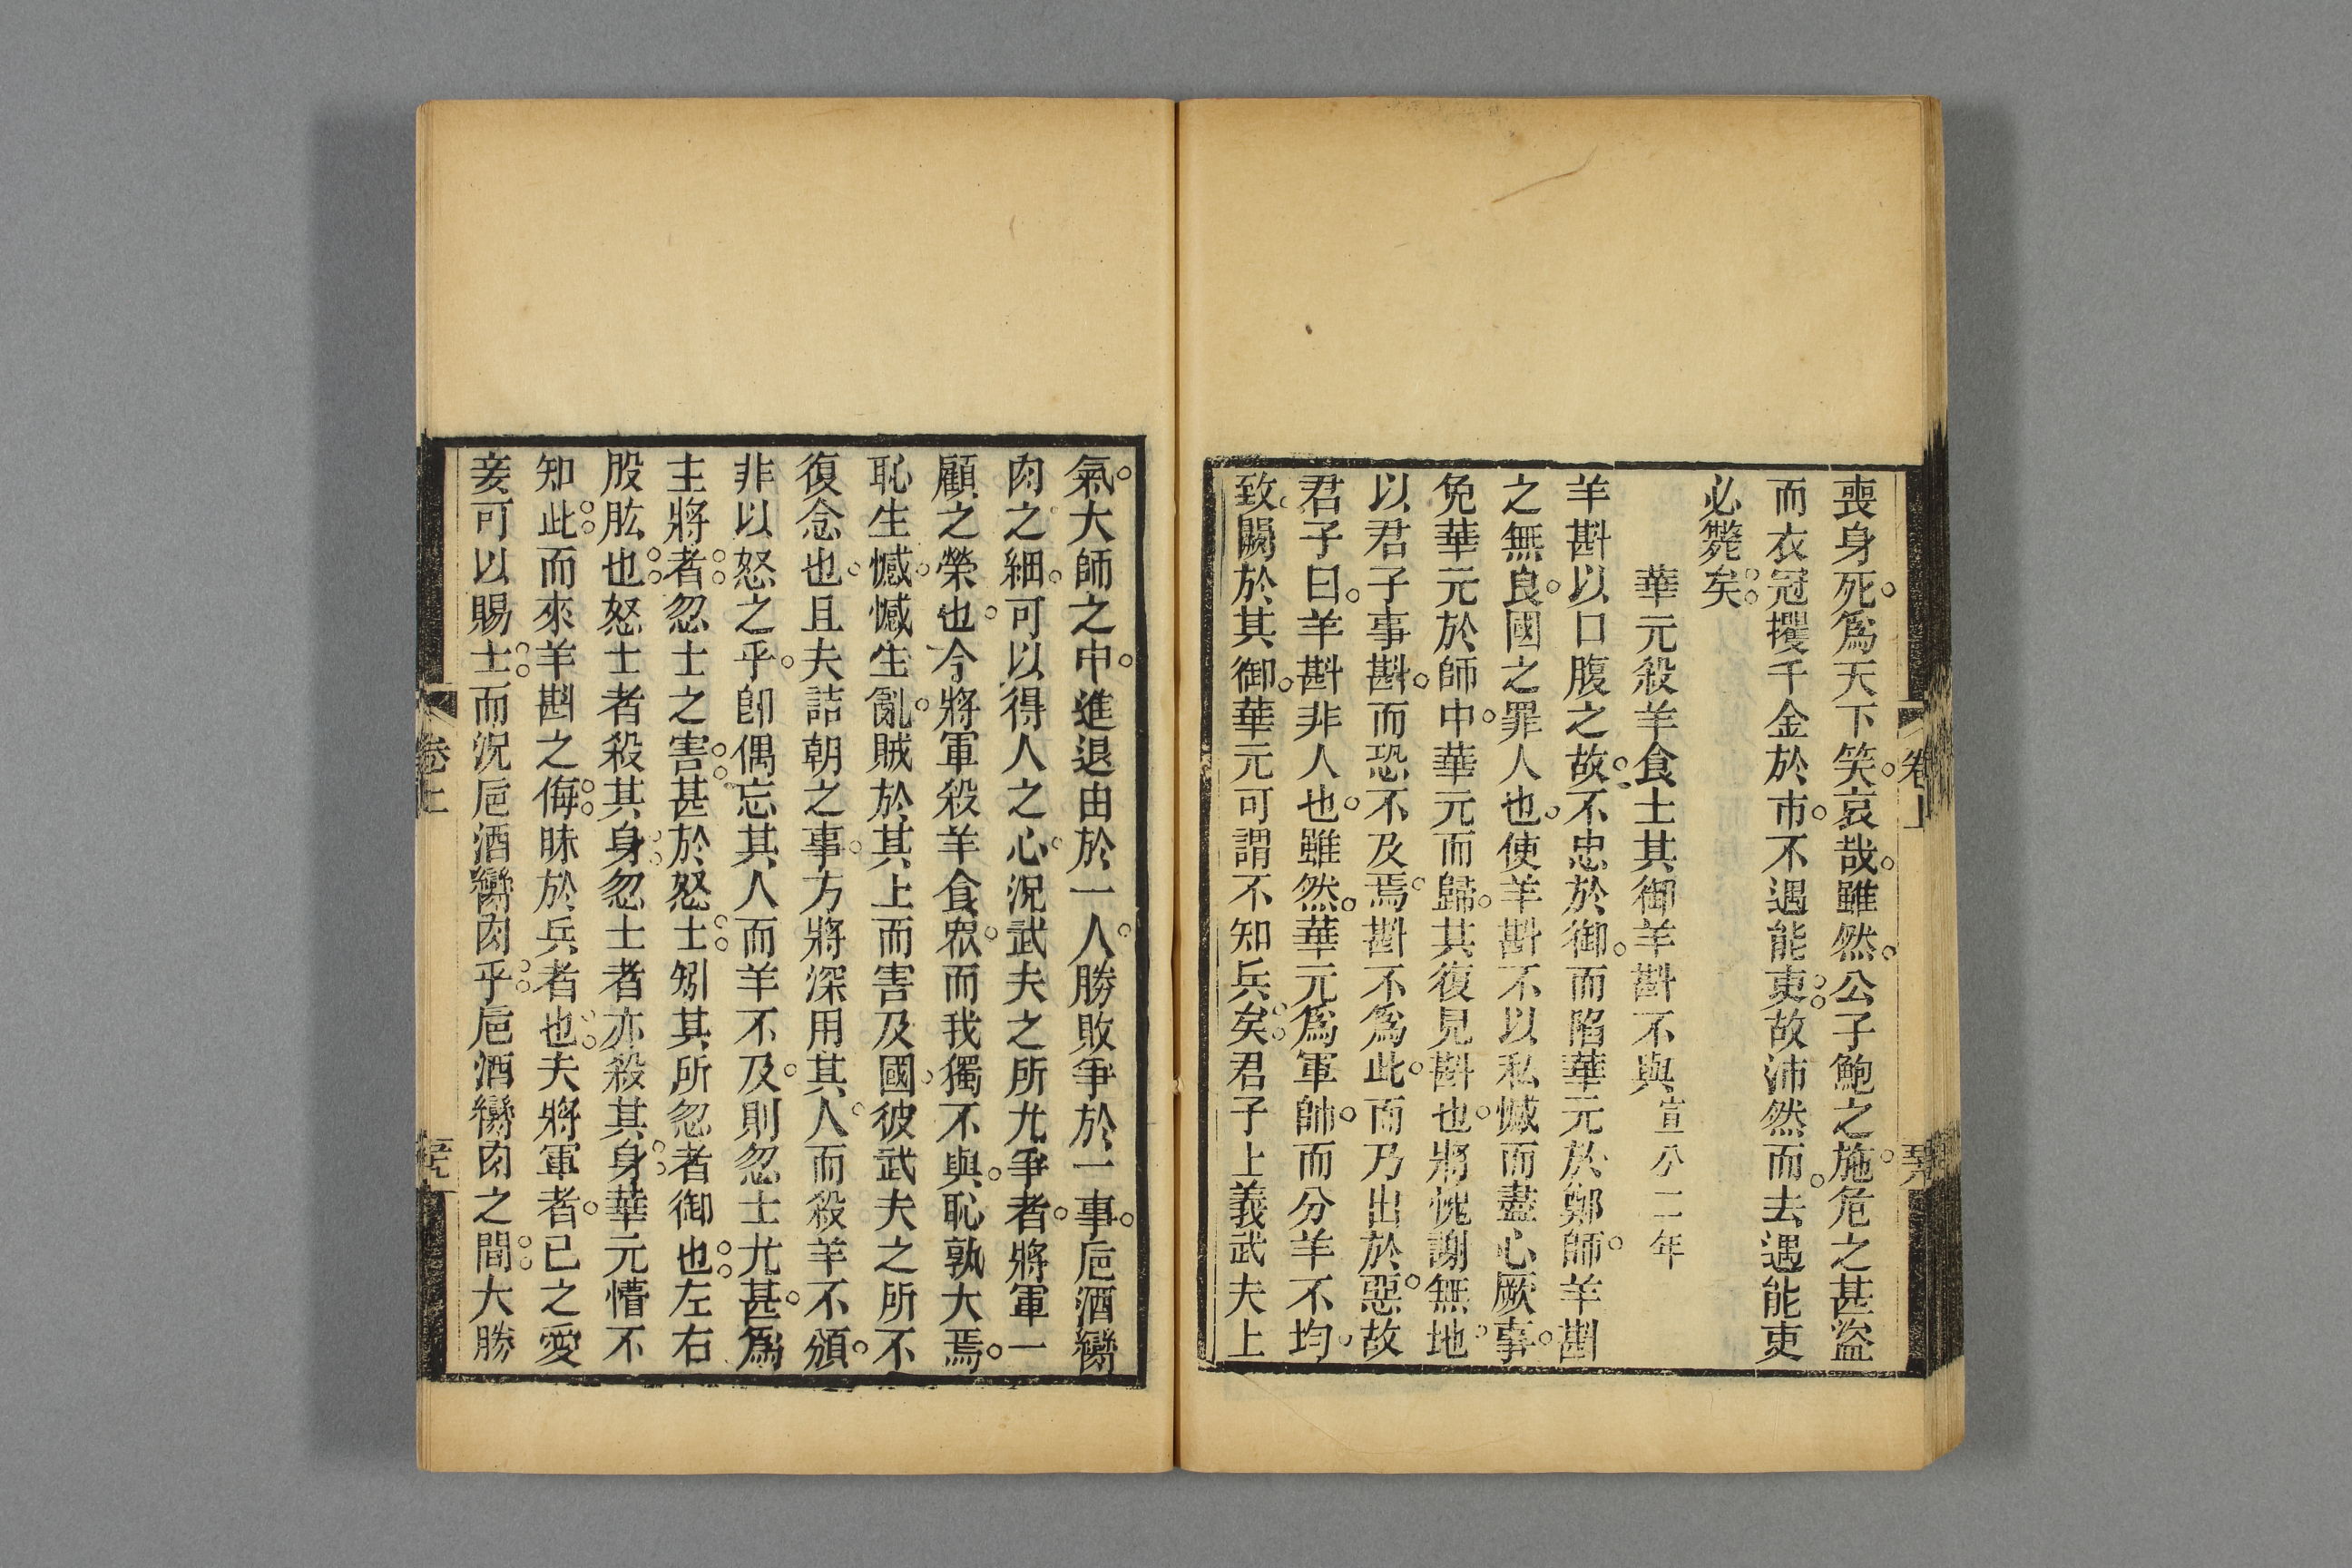 喪身死爲天下笑哀哉雖然公子鮑之施危之甚盜
而衣冠攫千金於市不遇能吏故沛然而去遇能吏
必斃矣
華元殺羊食士其御羊斟不與宣公二年
羊斟以口腹之故不忠於御而陷華元於鄭師羊斟
之無良國之罪人也使羊斟不以私憾而盡心厥事
免華元於師中華元而歸其復見斟也將愧謝無地
以君子事斟而恐不及焉斟不爲此而乃出於惡故
君子曰羊斟非人也雖然華元爲軍帥而分羊不均
致闕於其御華元可謂不知兵矣君子上義武夫上
卷上
氣大師之中進退由於一人勝敗爭於一事巵酒臠
肉之細可以得人之心況武夫之所尤爭者將軍一
顧之榮也今將軍殺羊食衆而我獨不與恥孰大焉
恥生憾憾生亂賊於其上而害及國彼武夫之所不
復念也且夫詰朝之事方將深用其人而殺羊不頒
非以怒之乎卽偶忘其人而羊不及則忽士尤甚爲
主將者忽士之害甚於怒士矧其所忽者御也左右
股肱也怒士者殺其身忽士者亦殺其身華元懵不
知此而來羊斟之侮昧於兵者也夫將軍者已之愛
妾可以賜士而況巵酒臠肉乎巵酒臠肉之間大勝
卷上